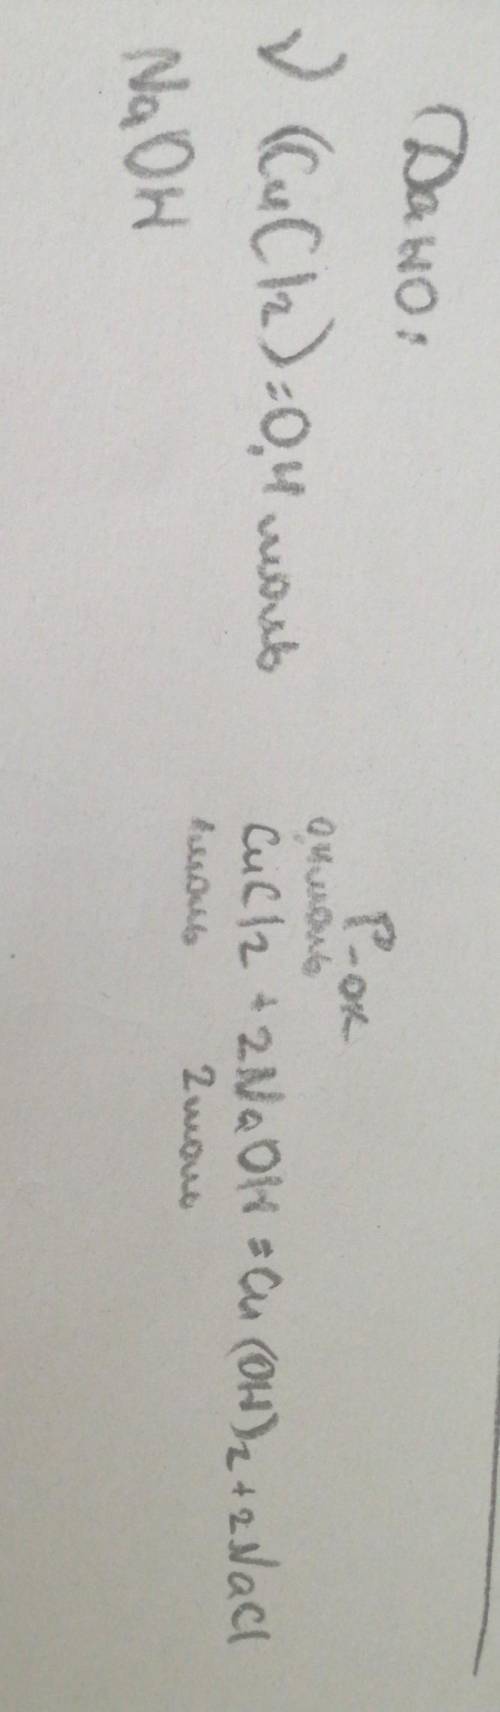 Дано:
ν (CuCl2) = 0,4 моль
NaOH
Р-ок
0,4 моль
CuCl2 + 2NaOH = Cu(OH)2 + 2NaCl
1 моль 2 моль